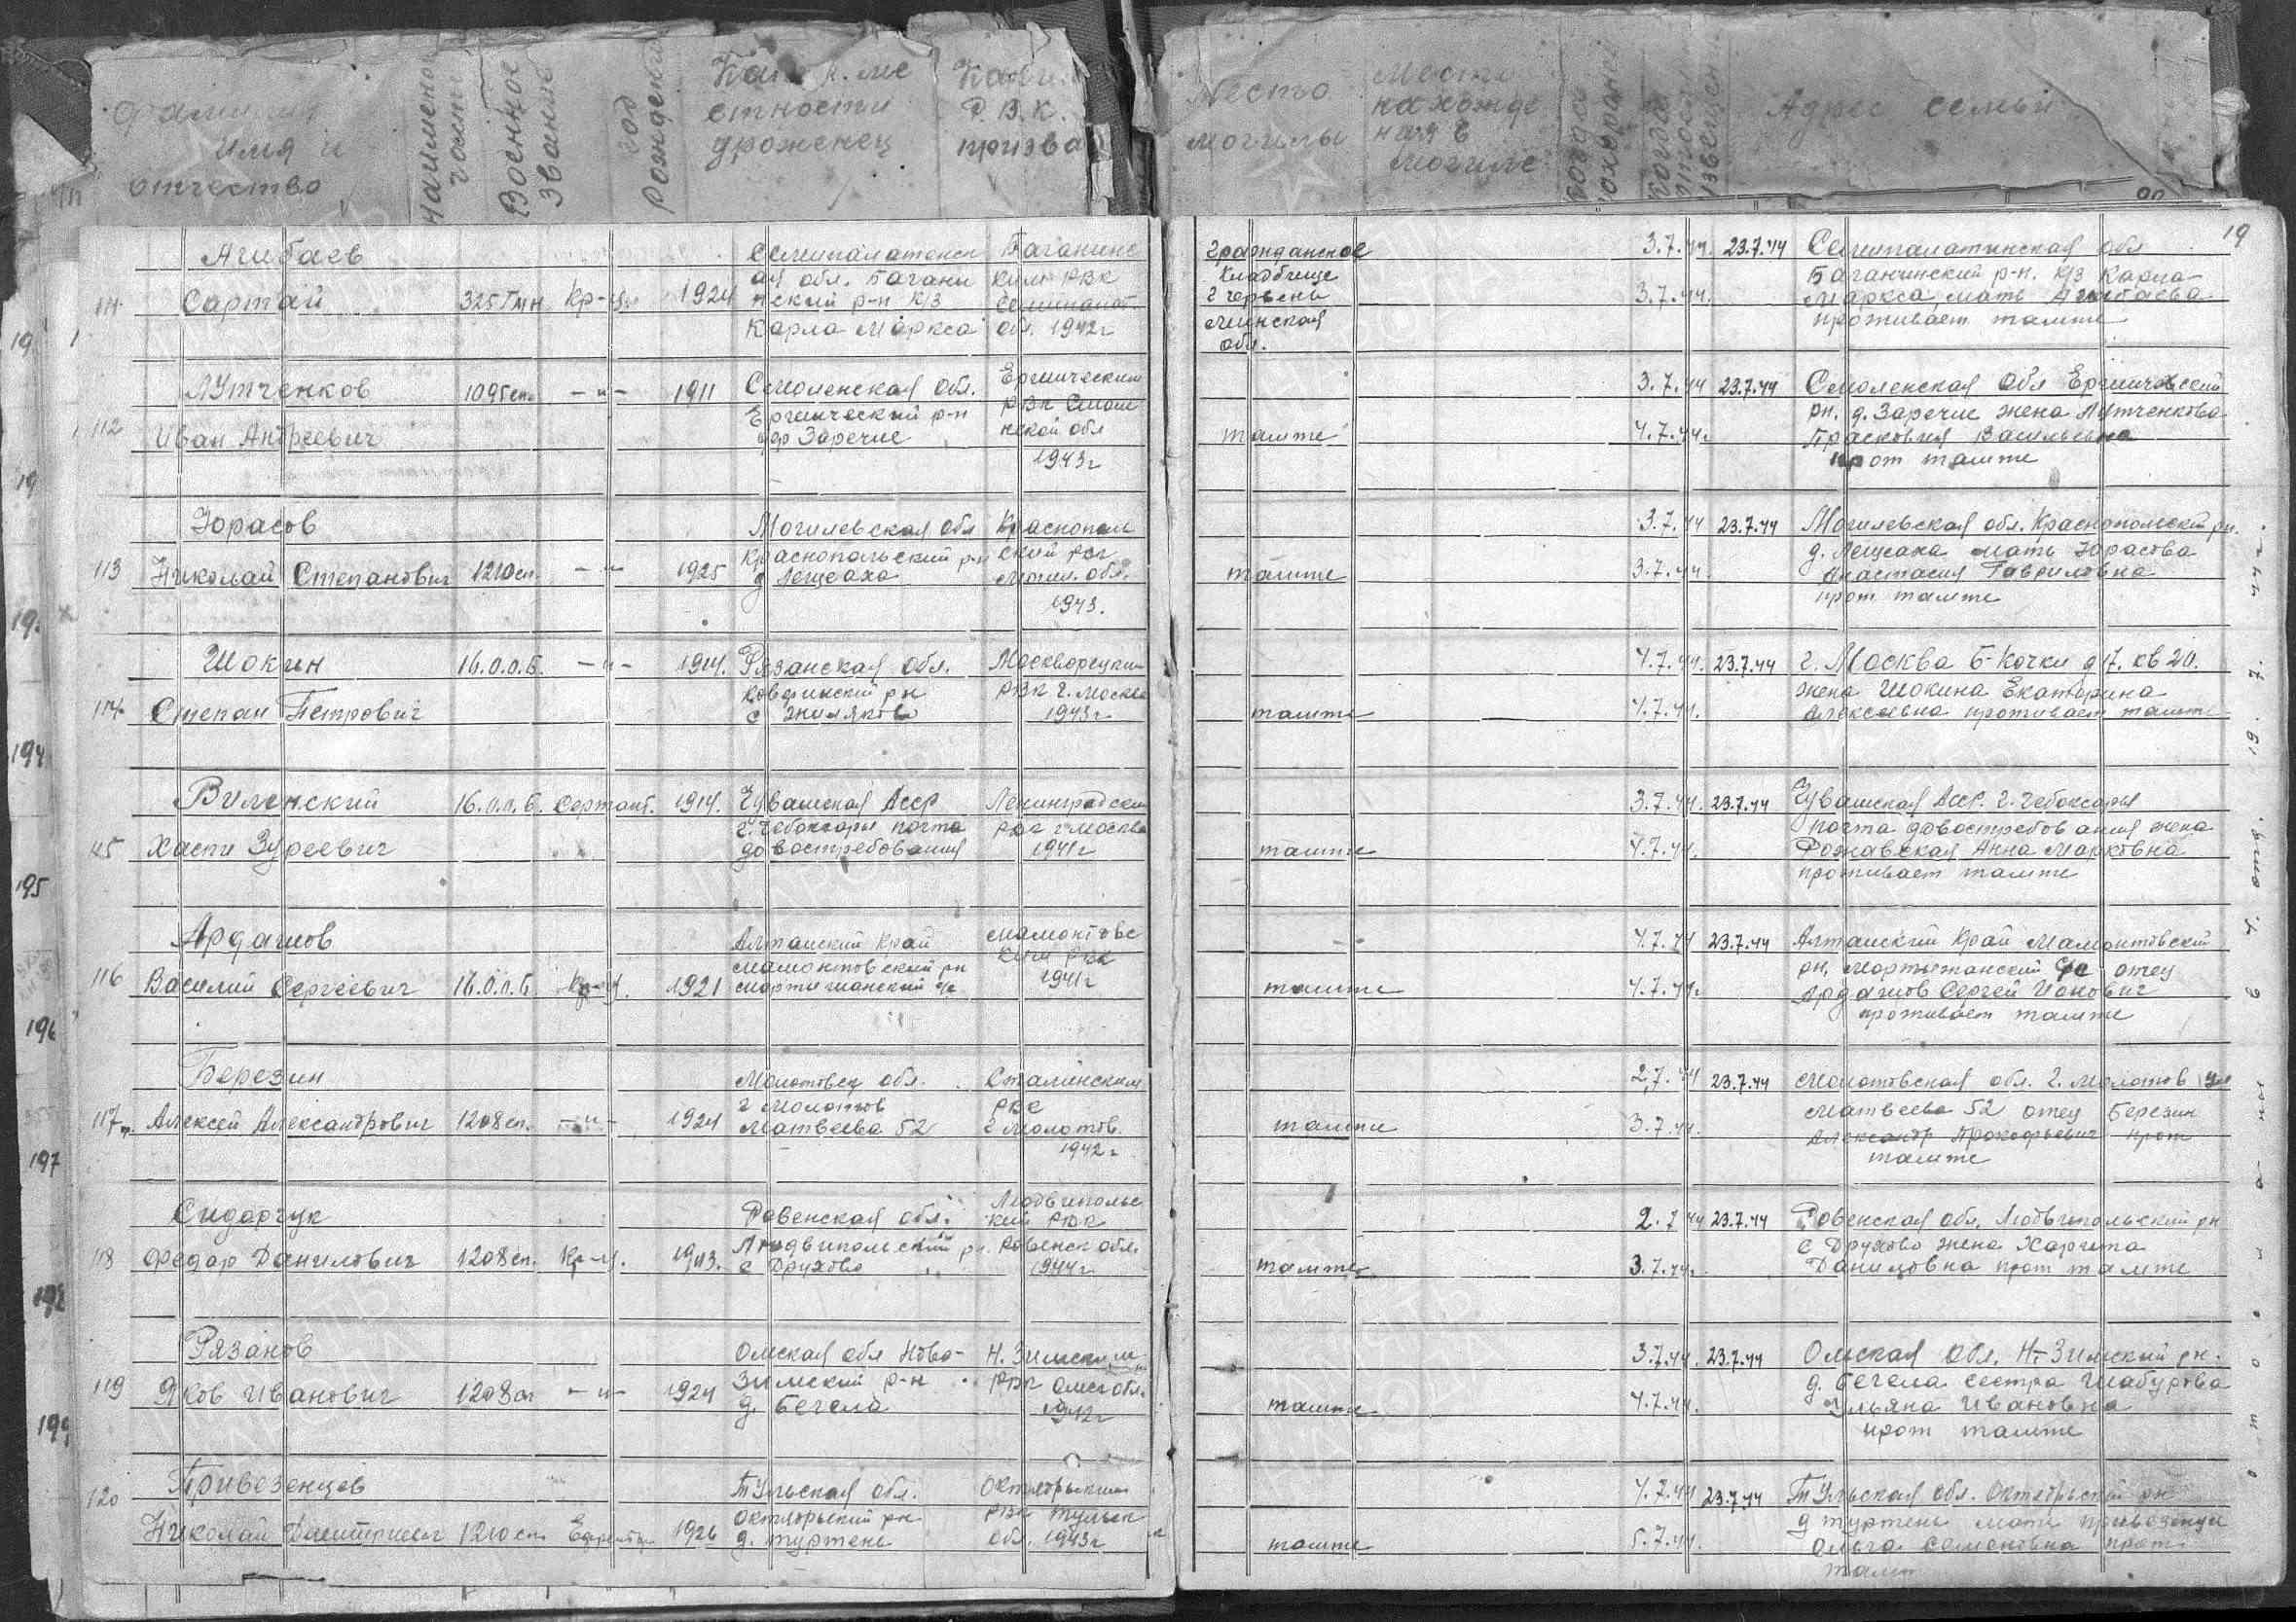 Фамилия
имя и
отчество
Военное
звание
год
Рождения
стности
уроженец
Р.В.К.
призва
Место
могилы
Место
нахожде
ния в
могиле
Когда
Адрес семьи
19
Агибаев
Сартай
325 Гмн Кр-ц 1924
Семипалатенск
ая обл. Багани
нский р-н к/з
Карла Маркса
Баганинс
ким РВК
Семипалат.
обл. 1942г
Гражданское
кладбище
г Червень
Минская
обл.
3.7.44. 23.7.44
3.7.44.
Семипалатинская обл
Баганинский р-н. к/з Карла-
Маркса, мать Агибаева
проживает тамже
112
Лутченков
Иван Андреевич
1095сп. -"- 1911
Смоленская обл.
Ершический р-н
д Заречие
Ершическим
РВК Смол
нской обл
1943г
тамже
3.7.44 23.7.44
4.7.44.
Смоленская обл Ершический
рн. д. Заречие жена Лутченкова
Прасковия Васильевна
прот тамже
113
Юрасов
Николай Степанович
1210сп. -"- 1925
Могилевская обл
Краснопольский р-н
д Лещсаха
Краснополь
ский РВК
могил. обл.
1943.
тамже
3.7.44 23.7.44
3.7.44.
Могилевская обл. Краснопольский рн.
д. Лещсаха мать Юрасова
Анастасия Гавриловна
прот тамже
114
Шокин
Степан Петрович
16.О.О.Б. -"- 1914.
Рязанская обл.
рн
с Жиляково
Москворецки-
РВК г. Москва
1943г
тамже
4.7.44. 23.7.44
4.7.44.
г. Москва Б-Кочки д 17. кв 20.
жена Шокина Екатерина
Алексеевна проживает тамже
Виленский
Хасти Зуреевич
16.О.О.Б. Сержант. 1914.
Чувашская Асср
г. Чебоксары почта
до востребования
Ленинградским
РВК г Москва
1941г
тамже
3.7.44. 23.7.44
4.7.44.
Чувашская Асср. г. Чебоксары
почта довостребования жена
Рожавская Анна Марковна
проживает тамже
116
Ардашов
Василий Сергеевич
16.О.О.Б. Кр-ц. 1921
Алтайский Край
Мамонтовский рн
Мамонтовс
ким РВК
1941г
тамже
4.7.44 23.7.44
4.7.44.
Алтайский Край Мамонтовский
рн. с/с отец
Ардашов Сергей
проживает тамже
117
Березин
Алексей Александрович
1208сп. -"- 1924
Молотовск обл.
г Молотов
Матвеева 52
Сталинским
РВК
г Молотов.
1942г
тамже
2.7.44 23.7.44
3.7.44.
Молотовская обл. г. Молотов ул
Матвеева 52 отец Березин
Александр Прокофьевич прот
тамже
118
Сидорчук
Федор Данилович
1208сп. Кр-ц.
Ровенская обл.
Людвипольский рн.
с Друхово
Людвипольс
кий РВК
Ровенск обл.
1944г
тамже
2.7.44 23.7.44
3.7.44.
Ровенская обл. Людвипольский рн
с Друхово жена Харита
Даниловна прот тамже
119
Рязанов
Яков Иванович
1208сп -"- 1924
Омская обл Ново-
Зимский р-н
д. Бегела
Н. Зимским
РВК Омск обл.
1942г
тамже
3.7.44. 23.7.44
4.7.44.
Омская обл. Н-Зимский рн.
д. Бегела сестра Шабурова
Ульяна Ивановна
прот тамже
120
Привезенцев
Николай Дмитриевич
1210сп. Ефрейтор 1926
Тульская обл.
октябрьский рн
д. туртень
Октябрьским
РВК Тульск
обл. 1943г
тамже
4.7.44 23.7.44
5.7.44.
Тульская обл. Октябрьский рн
д туртень мать
Ольга Семеновна прот
194
195
196
197
199